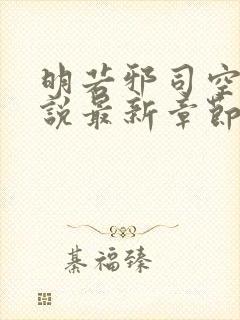 明若邪司空
說最新章節
綦福臻